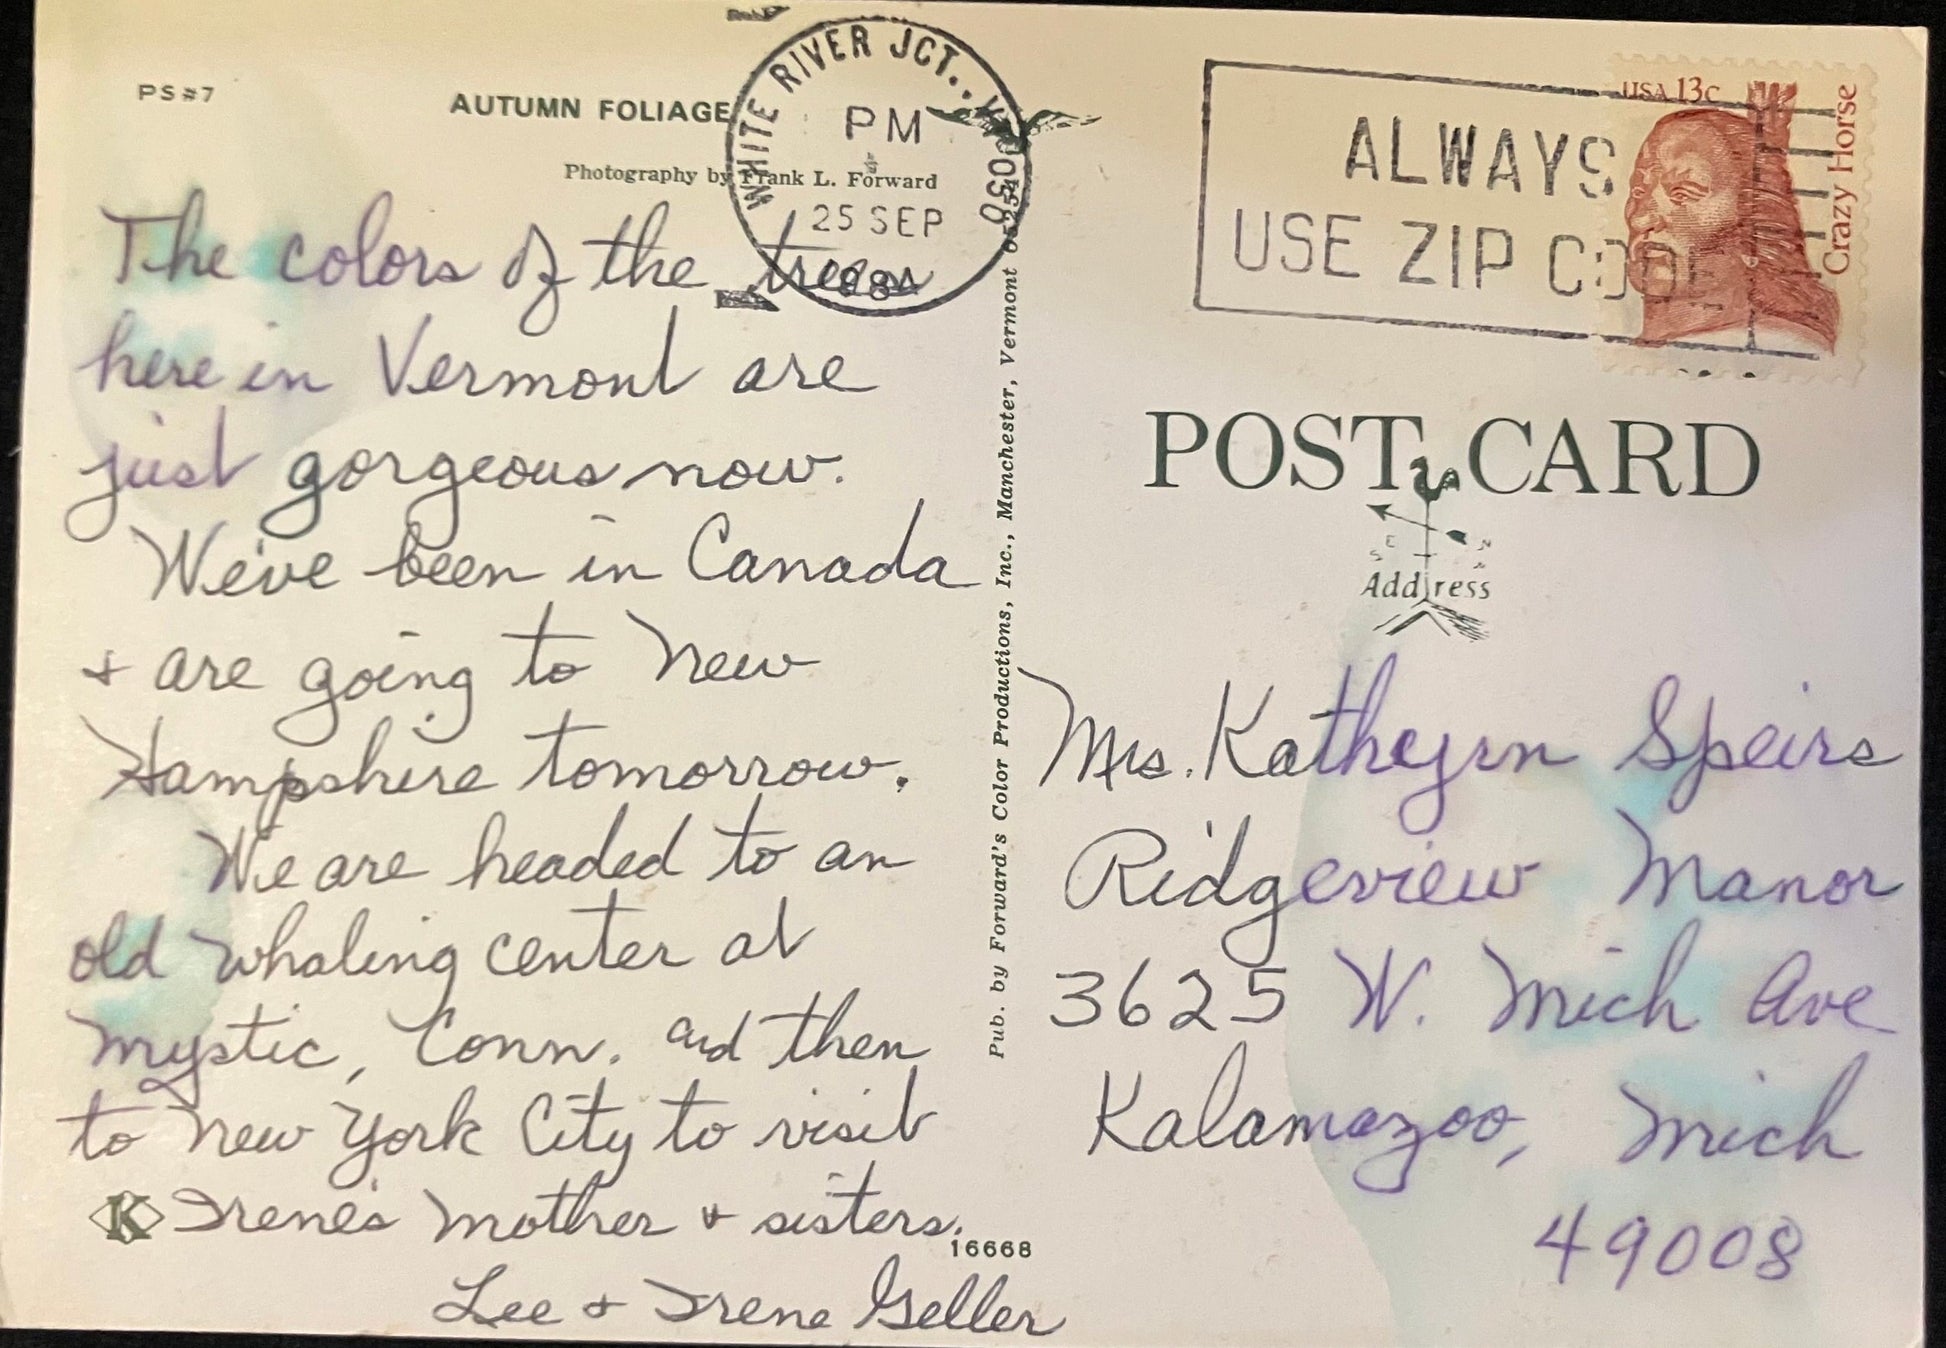 PS#7
AUTUMN FOLIAGE
Photography by Frank L. Forward
WHITE RIVER JCT., V
PM
25 SEP
The colors of the trees
here in Vermont are
just gorgeous now.
We've been in Canada
+ are going to New
Hampshire tomorrow.
We are headed to an
old whaling center at
Mystic, Conn. and then
to New York City to visit
K Irene's mother + sisters.
16668
Lee + Irene Geller
Pub. by Forward's Color Productions, Inc., Manchester, Vermont 05254
ALWAYS
USE ZIP CODE
USA 13c
Crazy Horse
POST CARD
E N
S W
Address
Mrs. Katheyrn Speirs
Ridgeview Manor
3625 W. Mich Ave
Kalamazoo, Mich
49008